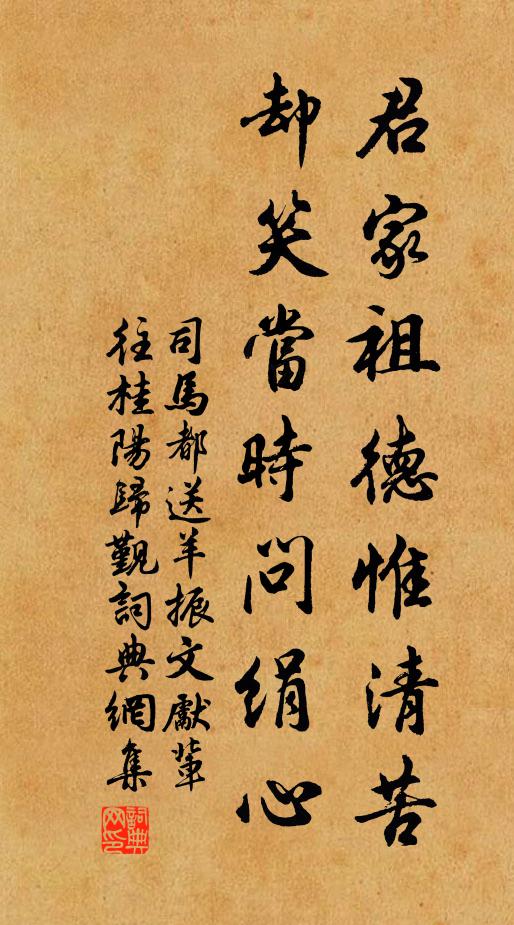 君家祖德惟清苦
却笑當時問絹心
司馬都送羊振文獻輩
往桂陽歸覲詞典網集
詞典网印